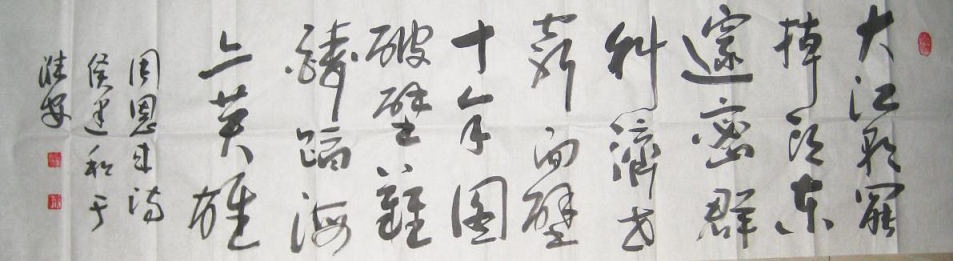 大江歌罷
掉頭東
邃密群
科濟世
窮面壁
十年圖
破壁難
酬蹈海
亦英雄
周恩来詩
侯建和于
淮安